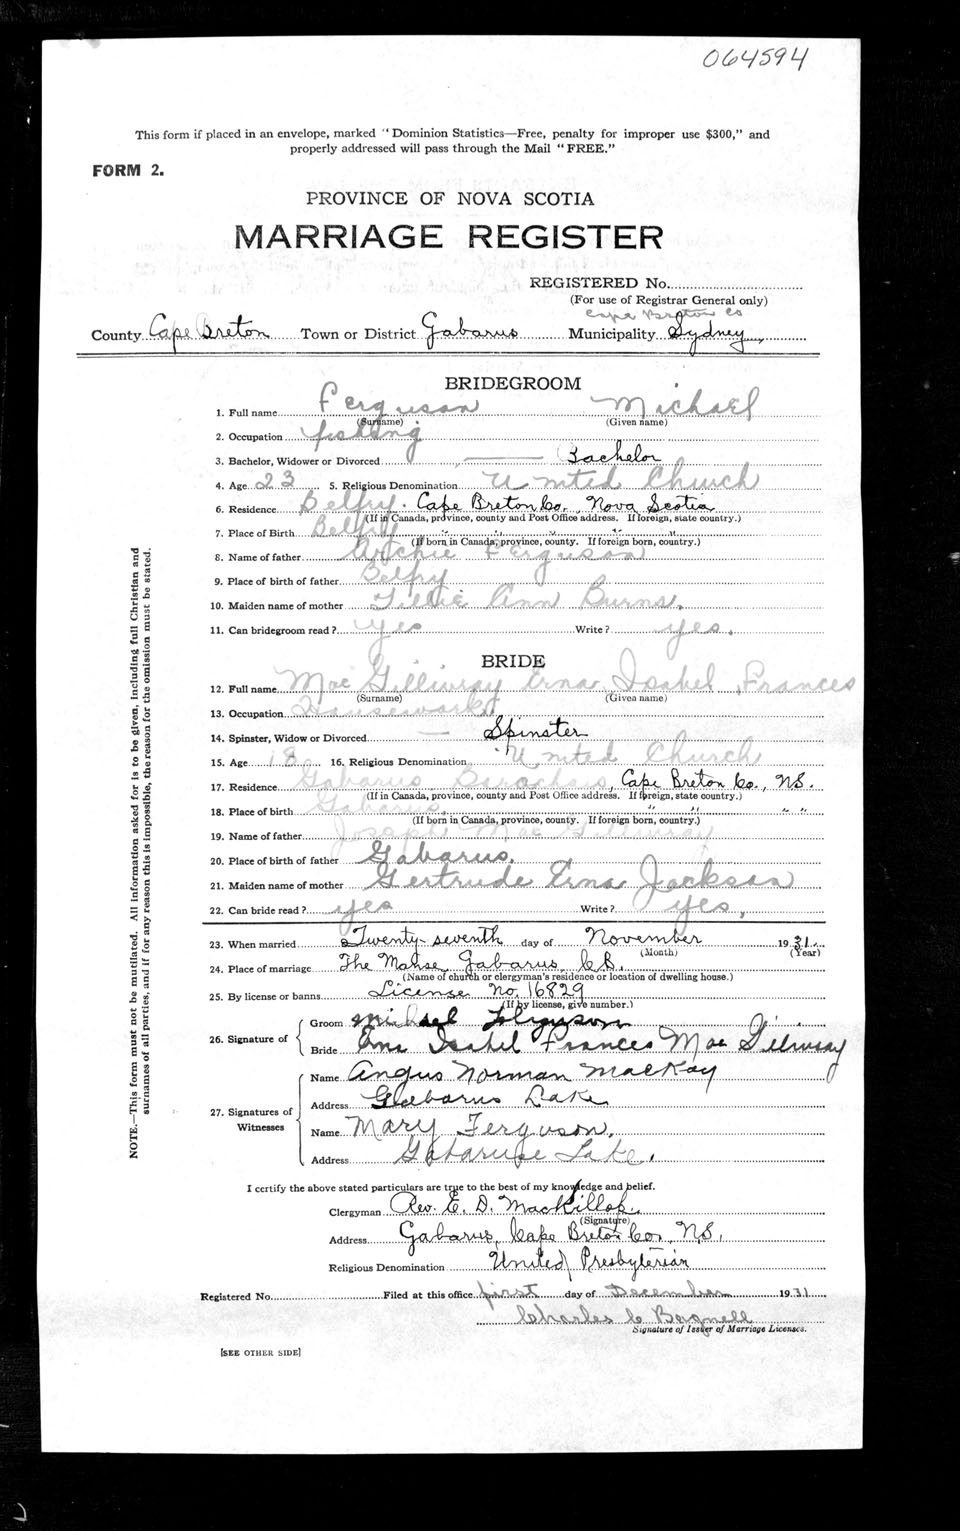 064594
This form if placed in an envelope, marked "Dominion Statistics—Free, penalty for improper use $300," and
properly addressed will pass through the Mail "FREE."
FORM 2.
PROVINCE OF NOVA SCOTIA
MARRIAGE REGISTER
REGISTERED No.
(For use of Registrar General only)
Cape Breton Co
County Cape Breton Town or District Gabarus Municipality Sydney
BRIDEGROOM
1. Full name Ferguson Michael
(Surname) (Given name)
2. Occupation fishing
3. Bachelor, Widower or Divorced Bachelor
4. Age 23 5. Religious Denomination United Church
6. Residence Belfry. Cape Breton Co., Nova Scotia
(If in Canada, province, county and Post Office address. If foreign, state country.)
7. Place of Birth Belfry " " " "
(If born in Canada, province, county. If foreign born, country.)
8. Name of father Archie Ferguson
9. Place of birth of father Belfry
10. Maiden name of mother Tillie Ann Burns.
11. Can bridegroom read? yes Write? yes.
BRIDE
12. Full name MacGillivray Erna Isabel Frances
(Surname) (Given name)
13. Occupation Housework
14. Spinster, Widow or Divorced — Spinster
15. Age 18 16. Religious Denomination United Church
17. Residence Gabarus Barachois, Cape Breton Co., N.S.
(If in Canada, province, county and Post Office address. If foreign, state country.)
18. Place of birth Gabarus, " " " "
(If born in Canada, province, county. If foreign born, country.)
19. Name of father Joseph MacGillivray
20. Place of birth of father Gabarus.
21. Maiden name of mother Gertrude Erna Jackson
22. Can bride read? yes Write? yes,
23. When married Twenty-seventh day of November 1931.
(Month) (Year)
24. Place of marriage The Manse, Gabarus, C.B.
(Name of church or clergyman's residence or location of dwelling house.)
25. By license or banns License No. 16829
(If by license, give number.)
26. Signature of Groom Michael Ferguson
Bride Erna Isabel Frances MacGillivray
27. Signatures of Witnesses Name Angus Norman MacKay
Address Gabarus Lake
Name Mary Ferguson.
Address Gabaruse Lake.
I certify the above stated particulars are true to the best of my knowledge and belief.
Clergyman Rev. E. D. MacKillop.
(Signature)
Address Gabarus, Cape Breton Co., N.S.
Religious Denomination United Presbyterian
Registered No. Filed at this office first day of December 1931
Charles C Bagnell
Signature of Issuer of Marriage Licenses.
[SEE OTHER SIDE]
NOTE.—This form must not be mutilated. All information asked for is to be given, including full Christian and
surnames of all parties, and if for any reason this is impossible, the reason for the omission must be stated.